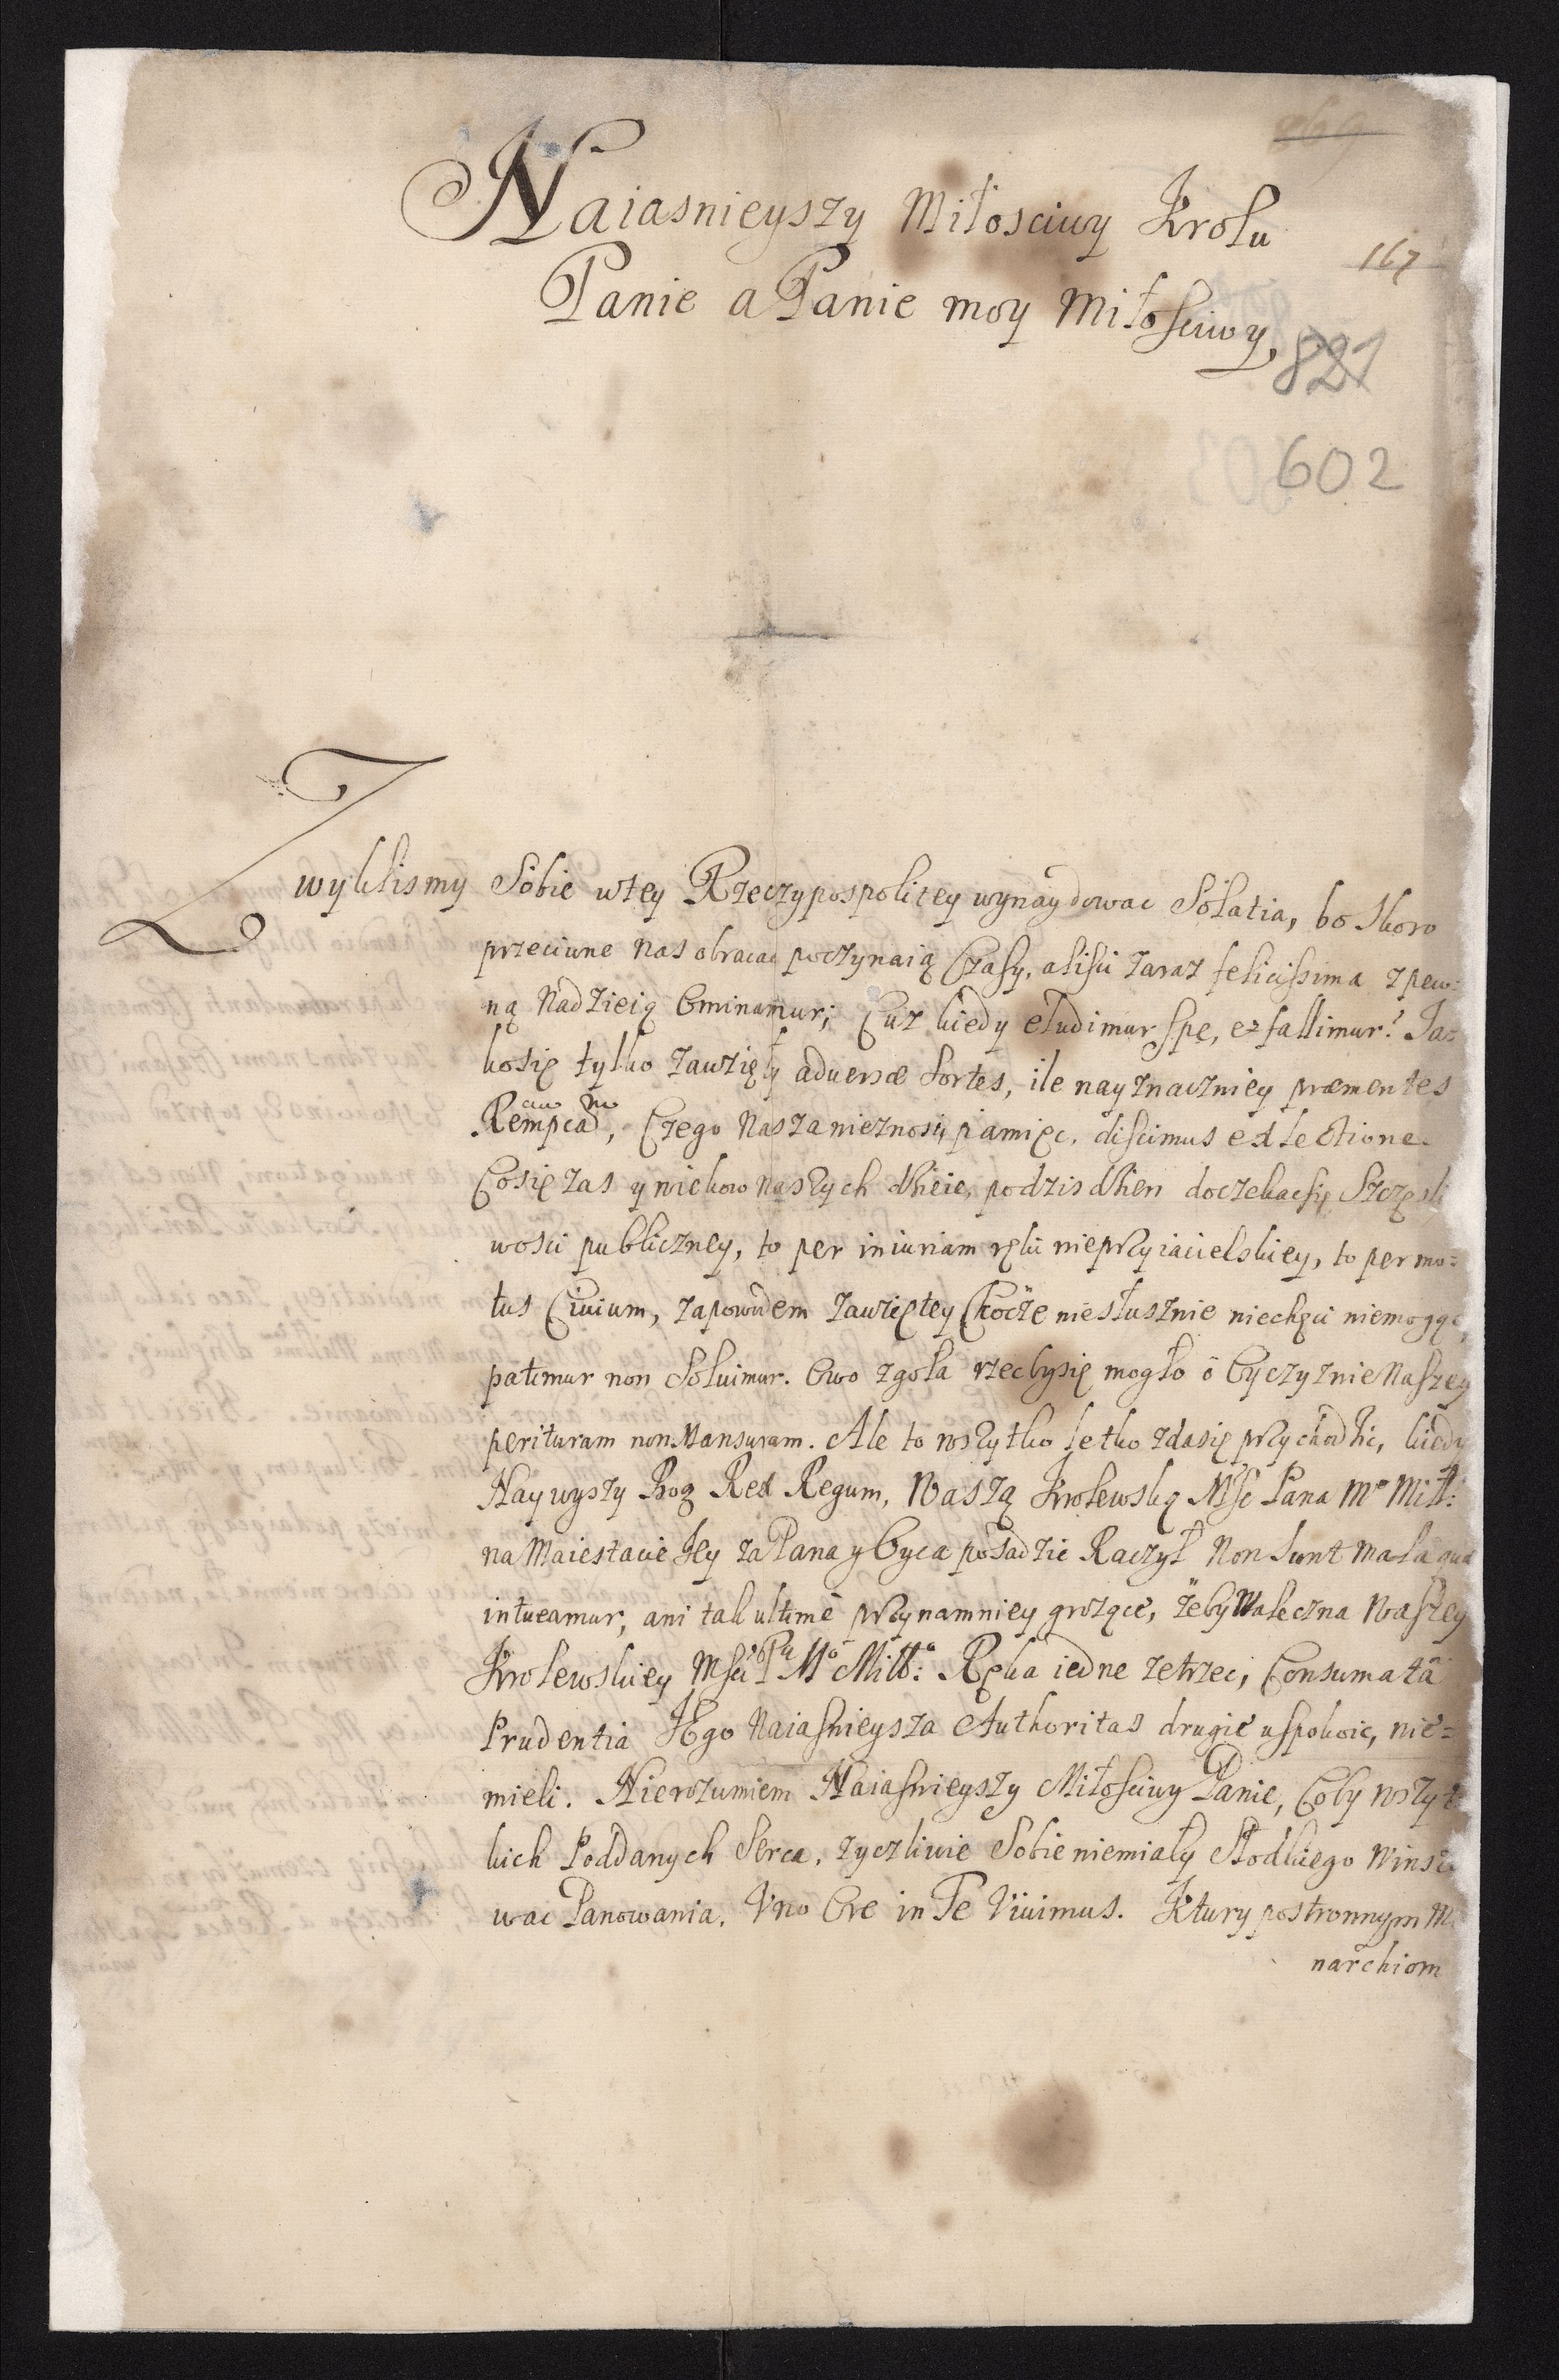 269
Naiasnieyszy Miłosciwy Krolu
167
Panie a Panie moy Miłosciwy,
821
602
Zwyklismy Sobie wtey Rzeczypospolitey wynaydowac Solatia, bo skoro
przeciwne nas obracac poczynaią Czasy, alisci zaraz felicissima z pew:
ną Nadzieią Ominamur; Cuz kiedy eludimur spe, et fallimur? Ja:
kosię tylko zawzięły aduersæ Sortes, ile nayznaczniey præmentes
Rempcam, Czego Nasza nieznosi pamięc, discimus ex lectione.
Cosię zas y wiekow naszych dzieie, podzis dzien doczekacsię Szczęsli
wosci publiczney, to per iniuriam ręki nieprzyiacielskiey, to per mo:
tus Ciuium, zapowodem zawziętey Choćże niesłusznie niechęci niemogąc,
patimur non Soluimur. Owo zgoła rzecbysię mogło o Oyczyznie Naszey
perituram non Mansuram. Ale to wszytko letko zdasię przychodzic, kiedy
Naywyszy Bog Rex Regum, Waszą Krolewską Msc Pana Mo Miłł:
na Maiestacie Jey za Pana y Oyca posadzic Raczył Non sunt mala quæ
intueamur, ani tak ultimè przynamniey grozące, żeby Waleczna Waszey
Krolewskiey Msci Pa Mo Miłł:o Ręka iedne zetrzec, Consumatâ
Prudentia JEgo Naiasnieysza Authoritas drugie uspokoic, nie=
mieli. Nierozumiem Naiasnieyszy Miłosciwy Panie, Coby wszyt
kich Poddanych Serca, zyczliwie Sobie niemiały Słodkiego Winszo
wac Panowania. Vno Ore in Te Viuimus. Ktury postronnym Mo
narchiom